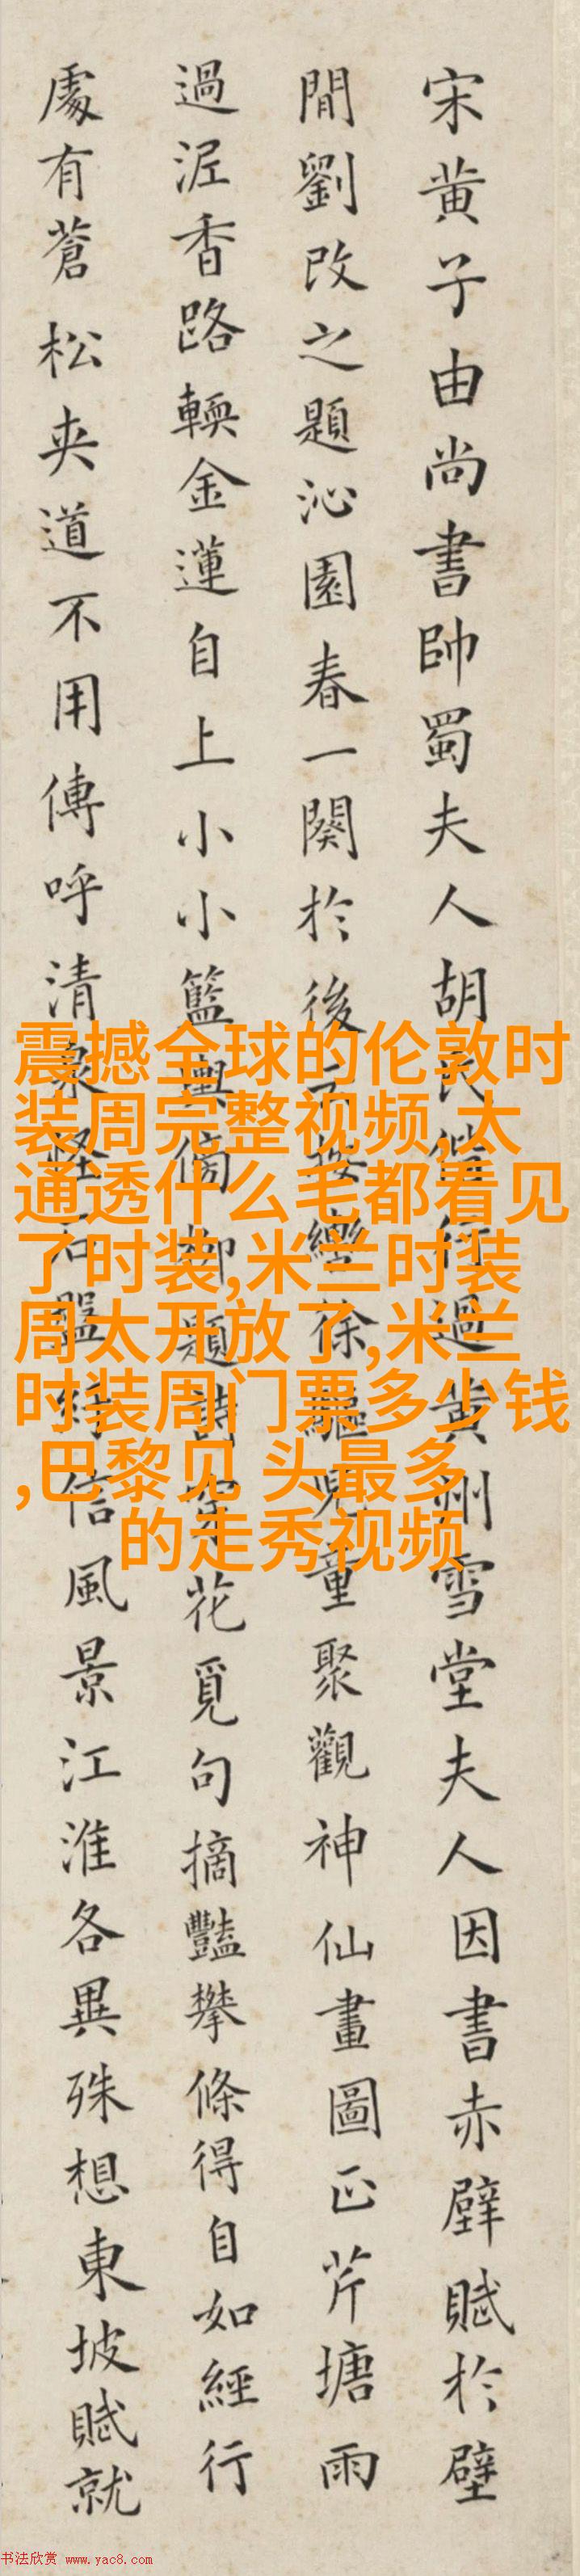 宋黄子由尚書帥蜀夫人胡氏偕行過黄州雪堂夫人因書赤壁賦於壁
間劉改之題沁園春一闋於後云按轡徐驅兒童聚觀神仙畫圖正芹塘雨
過泥香路輭金蓮自上小小籃輿傍柳題詩穿花覓句摘豔攀條得自如經行
處有蒼松夾道不用傳呼清泉怪石盤紆信風景江淮各異殊想東坡賦就
震撼全球的伦敦时
装周完整视频,太
通透什么毛都看见
了时装,米兰时装
周太开放了,米兰
时装周门票多少钱
,巴黎见 头最多
的走秀视频
书法欣赏 www.yac8.com